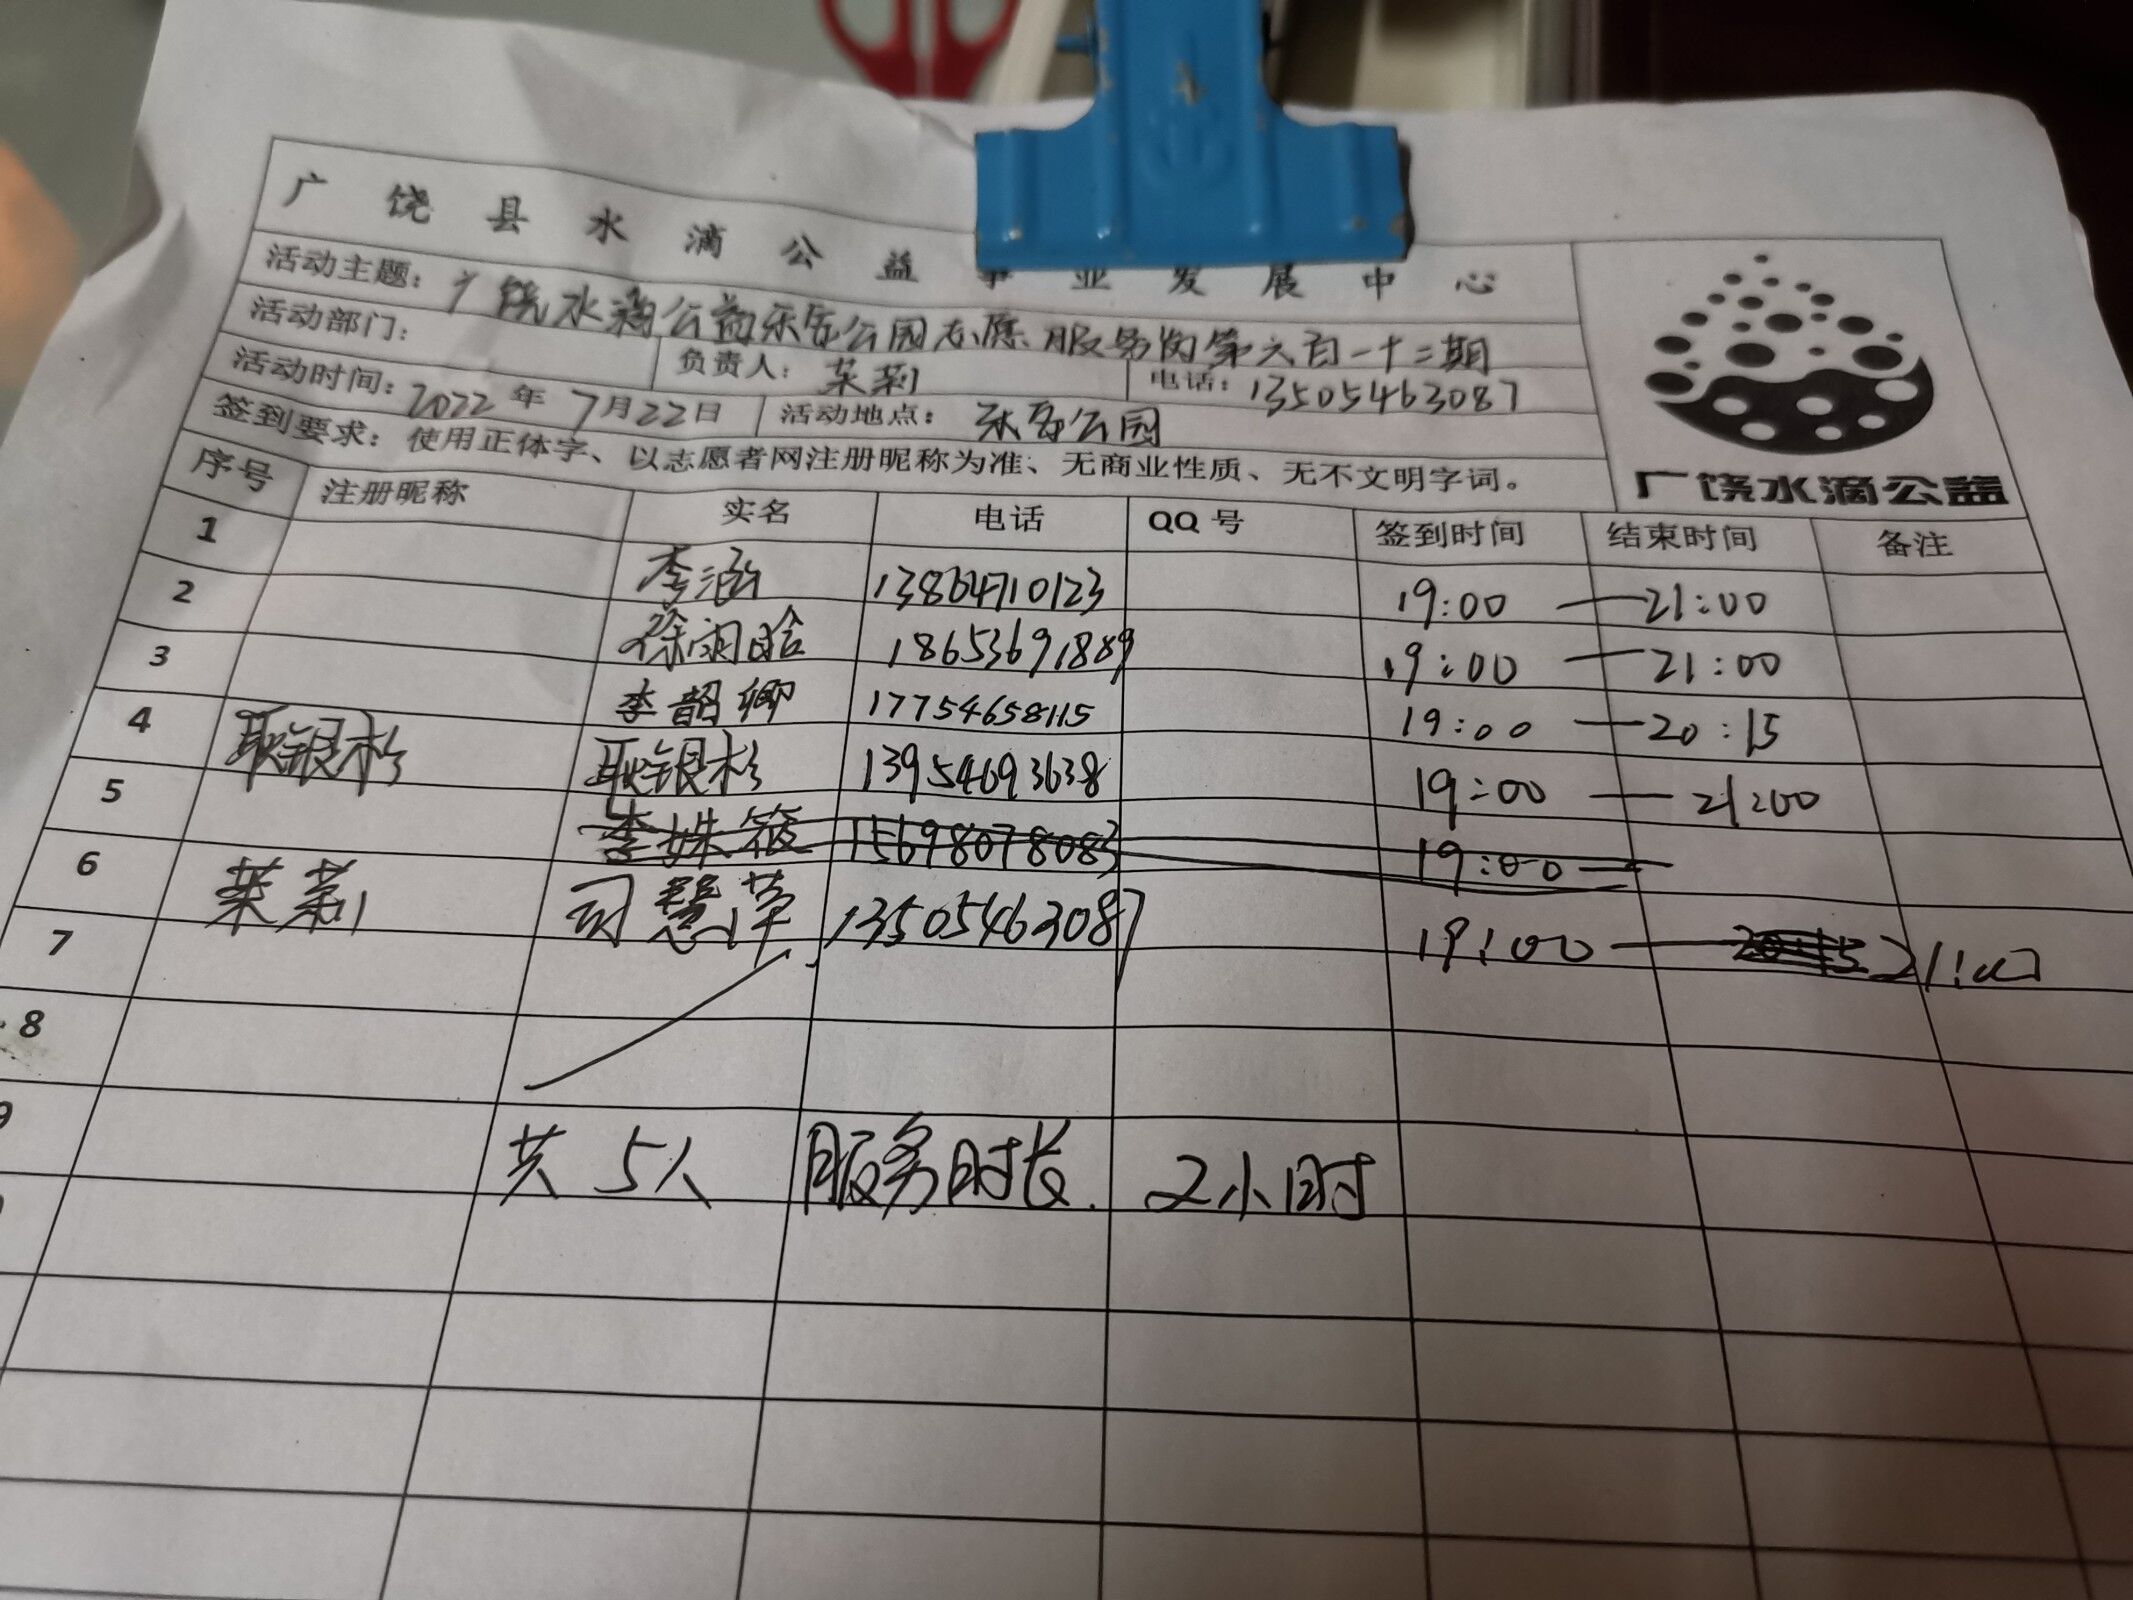 广饶县水滴公益事业发展中心
活动主题：广饶水滴公益乐安公园志愿服务岗第六百一十二期
活动部门： 负责人：茉莉 电话：13505463087
活动时间：2022年7月22日 活动地点：乐安公园
签到要求：使用正体字、以志愿者网注册昵称为准、无商业性质、无不文明字词。
广饶水滴公益
序号 注册昵称 实名 电话 QQ号 签到时间 结束时间 备注
1 李涵 13864710123 19:00 — 21:00
2 徐雨晗 18653691889 19:00 — 21:00
3 李韶卿 17754658115 19:00 — 20:15
4 耿银杉 耿银杉 13954693638 19:00 — 21:00
5 李姝筱 15698078083 19:00 —
6 茉莉 司慧萍 13505463087 19:00 — 21:00
7
8
9
共5人 服务时长 2小时